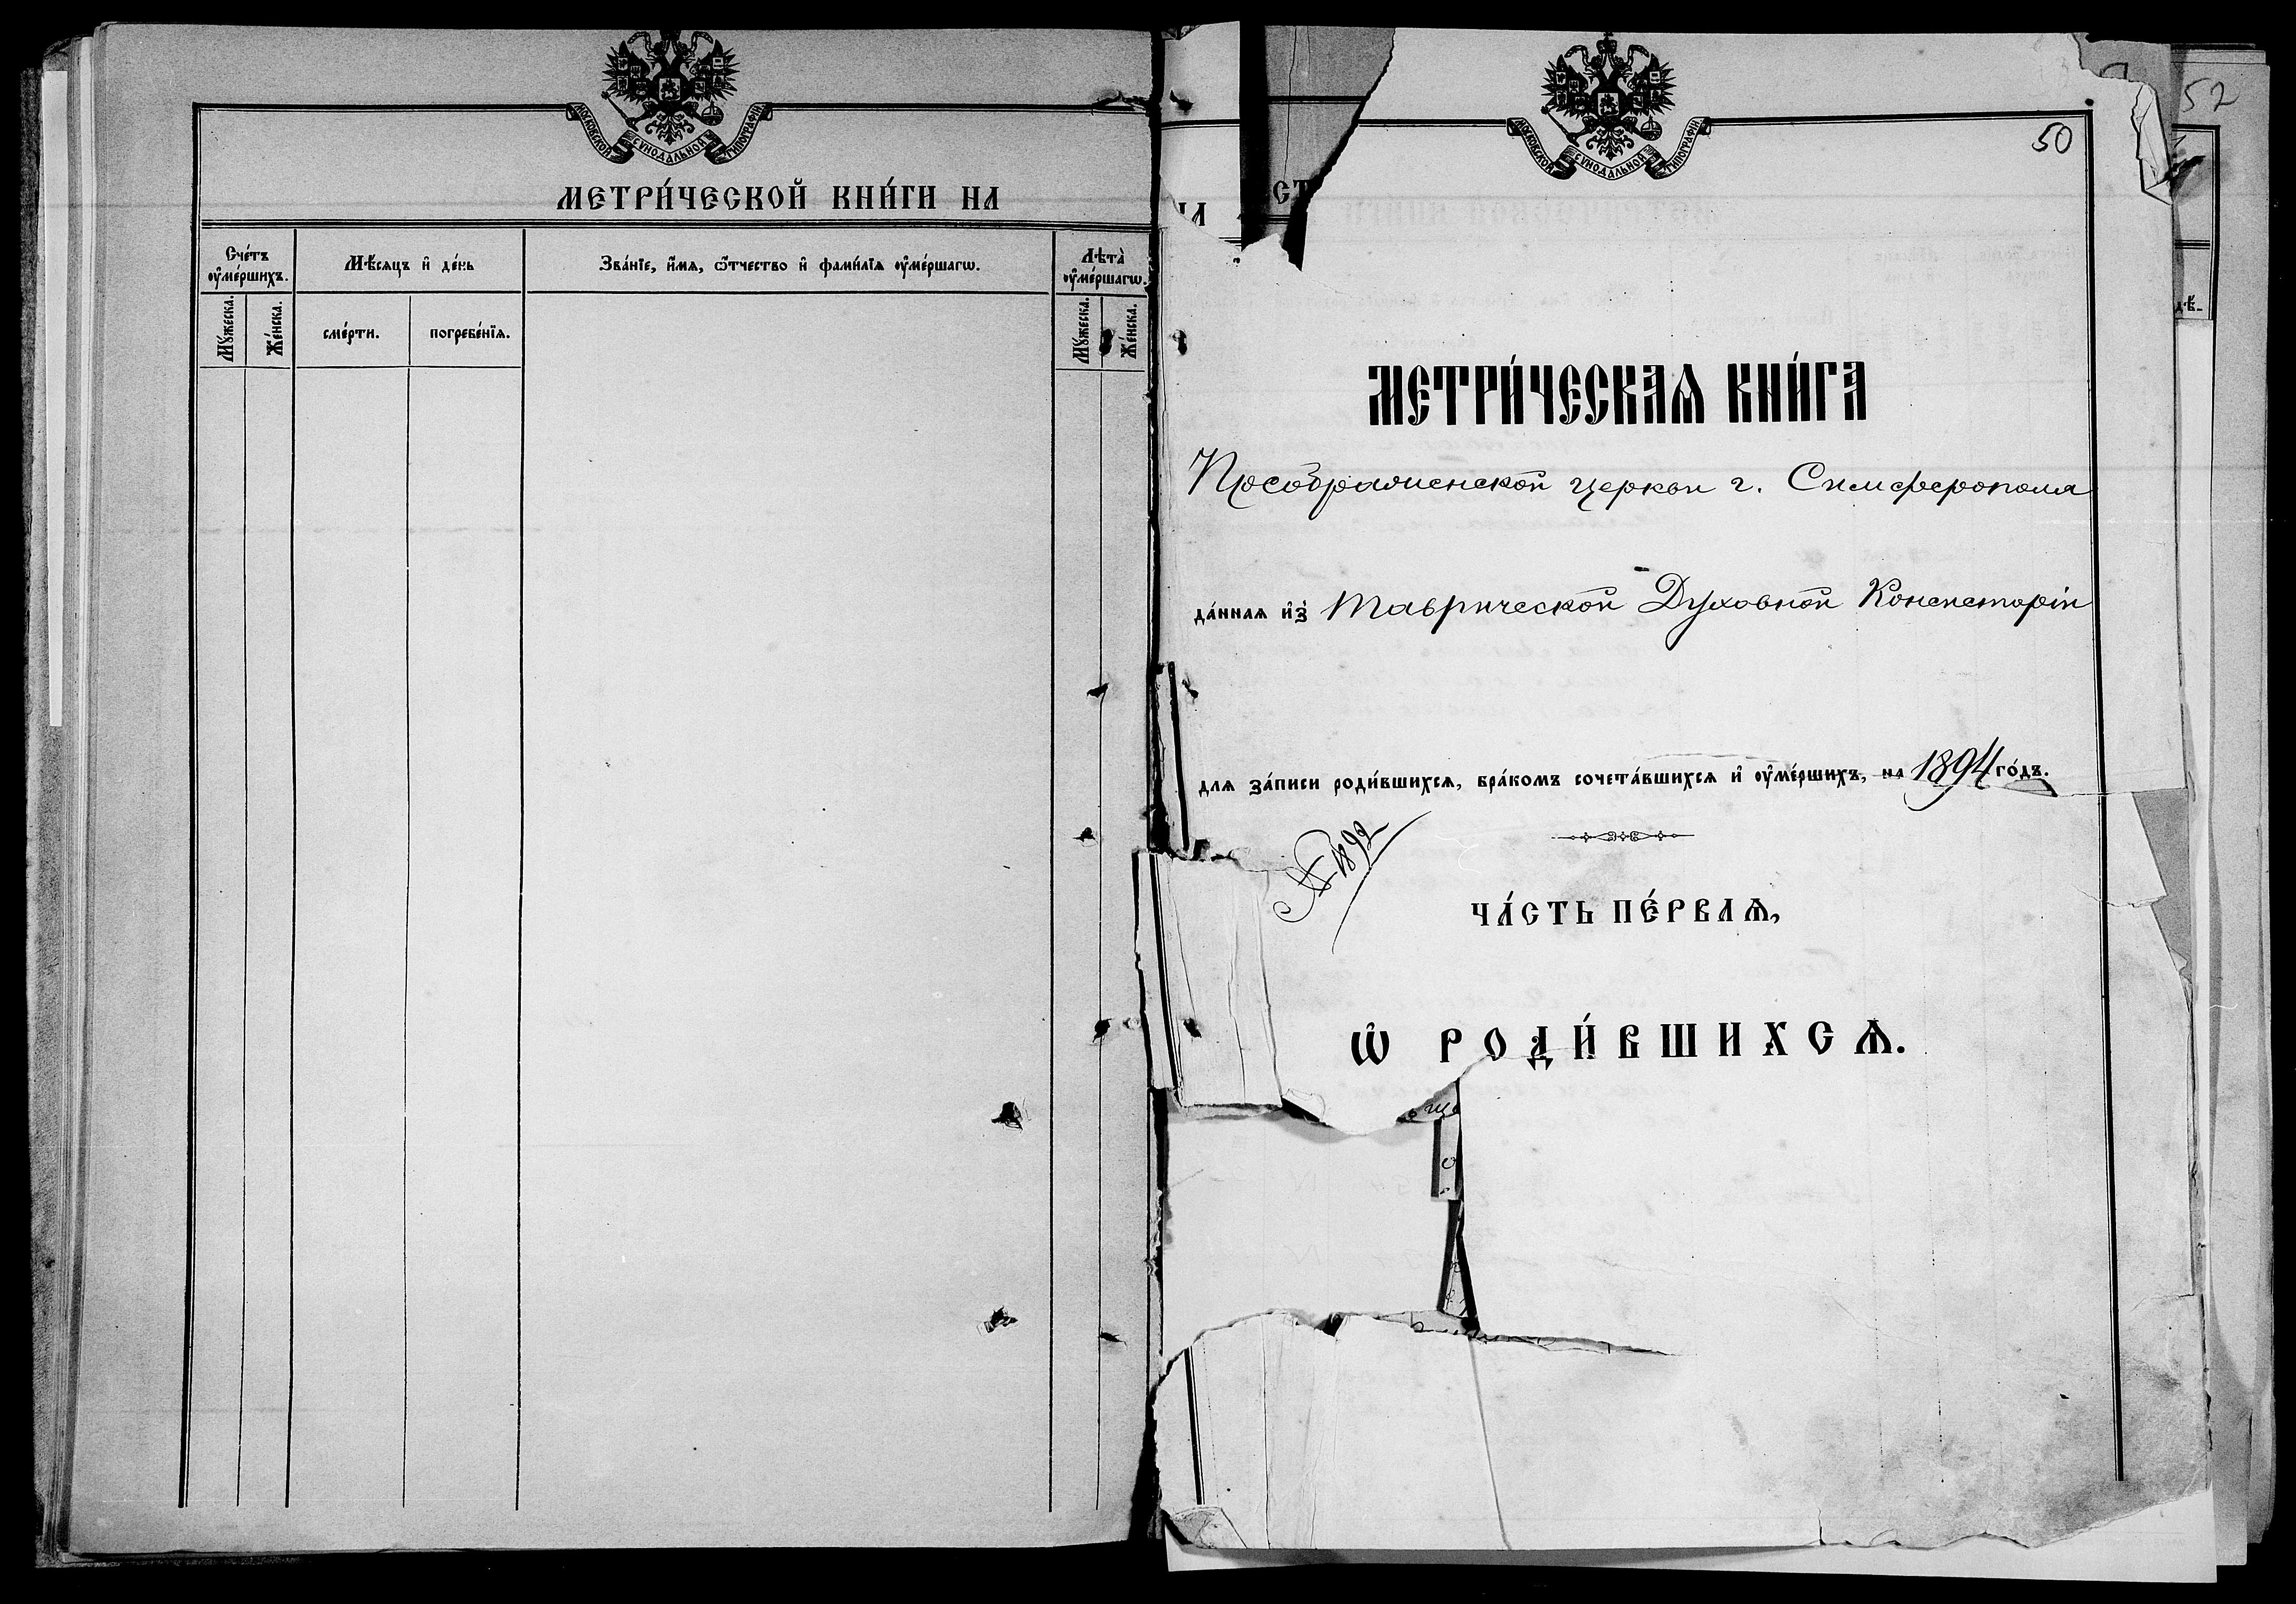 МОСКОВСКОЙ СѴНОДАЛЬНОЙ ТИПОГРАФІИ
МЕТРИ́ЧЕСКОЙ КНИ́ГИ НА
Сче́тъ ᲂу҆ме́ршихъ.
Мѣ́сяцъ и҆ де́нь
Зва́нїе, и҆́мѧ, ѻ҆́тчество и҆ фами́лїѧ ᲂу҆ме́ршагѡ.
Лѣта̀ ᲂу҆ме́ршагѡ.
Мꙋ́жеска.
Же́нска.
сме́рти.
погребе́нїѧ.
Мꙋ́жеска.
Же́нска.
52
МОСКОВСКОЙ СѴНОДАЛЬНОЙ ТИПОГРАФІИ
50
МЕТРИ́ЧЕСКАѦ КНИ́ГА
Преображенской церкви г. Симферополя
да́ннаѧ и҆з̾ Таврической Духовной Консисторіи
длѧ за́писи роди́вшихсѧ, бра́комъ сочета́вшихсѧ и҆ ᲂу҆ме́ршихъ, на 1894 го́дъ.
№ 1892
ЧА́СТЬ ПЕ́РВАѦ,
Ѡ҆ РОДИ́ВШИХСѦ.